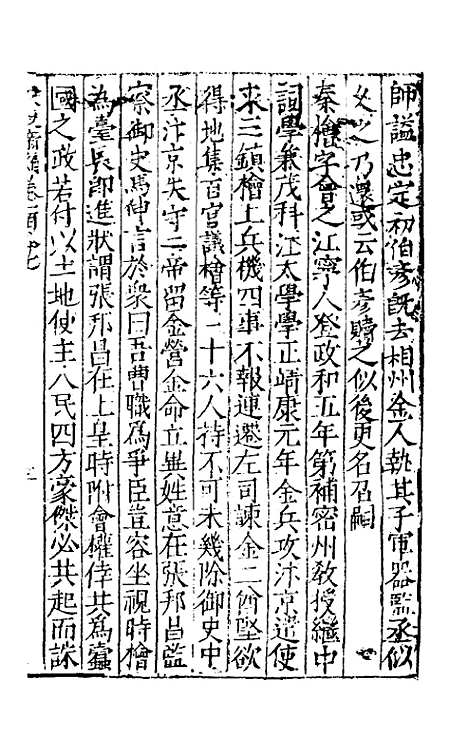 師謚忠定初伯彥旣去相州金人執其子軍器監丞似
久之乃還或云伯彥贖之似後更名召嗣
秦檜字會之江寧人登政和五年第補密州敎授繼中
詞學兼茂科江太學學正靖康元年金兵攻汴京遣使
求三鎮檜上兵機四事不報連遷左司諫金二酋堅欲
得地集百官議檜等二十六人持不可未幾除御史中
丞汴京失守二帝留金營金命立異姓意在張邦昌監
察御史馬伸言於衆曰吾曹職爲爭臣豈容坐視時檜
為臺長卽進狀謂張邦昌在上皇時附會權倖共爲蠹
國之政若付以土地使主人民四方豪傑必共起而誅
史新編卷一百